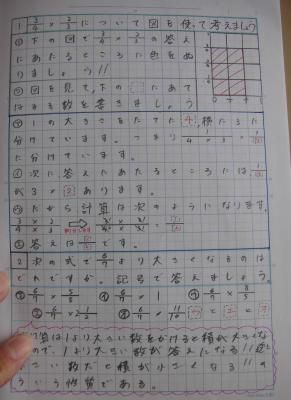 1 3/4 × 2/3 について図を使って考えましょう
①下の図で 3/4 × 2/3 の答え
にあたるところに色をぬ
りましょう。
②図を見て、下の□にあて
はまる数を答えましょう
㋐1の大きさをたてに4、横に3に
分けています。つまり 1/4 × 1/3 = 1/12
に分けています。
㋑次に答えにあたるところには、1/12
が3×2あります。
㋒だから計算は次のようになります。
3 × 2
4 × 3
答えは です。
2 次の式で 6/7 より大きくなるのは
どれですか。記号で答えましょう。
㋐ 6/7 × 5/8 ㋑ 6/7 × 1 ㋒ 6/7 × 8/5
6/7 × 2 1/3 6/7 × 11/10
算は1より大きい数をかけると積が大きくな
ので、1より大きい数が答えになる
さい数だと積が小さくなる
いう性質である。